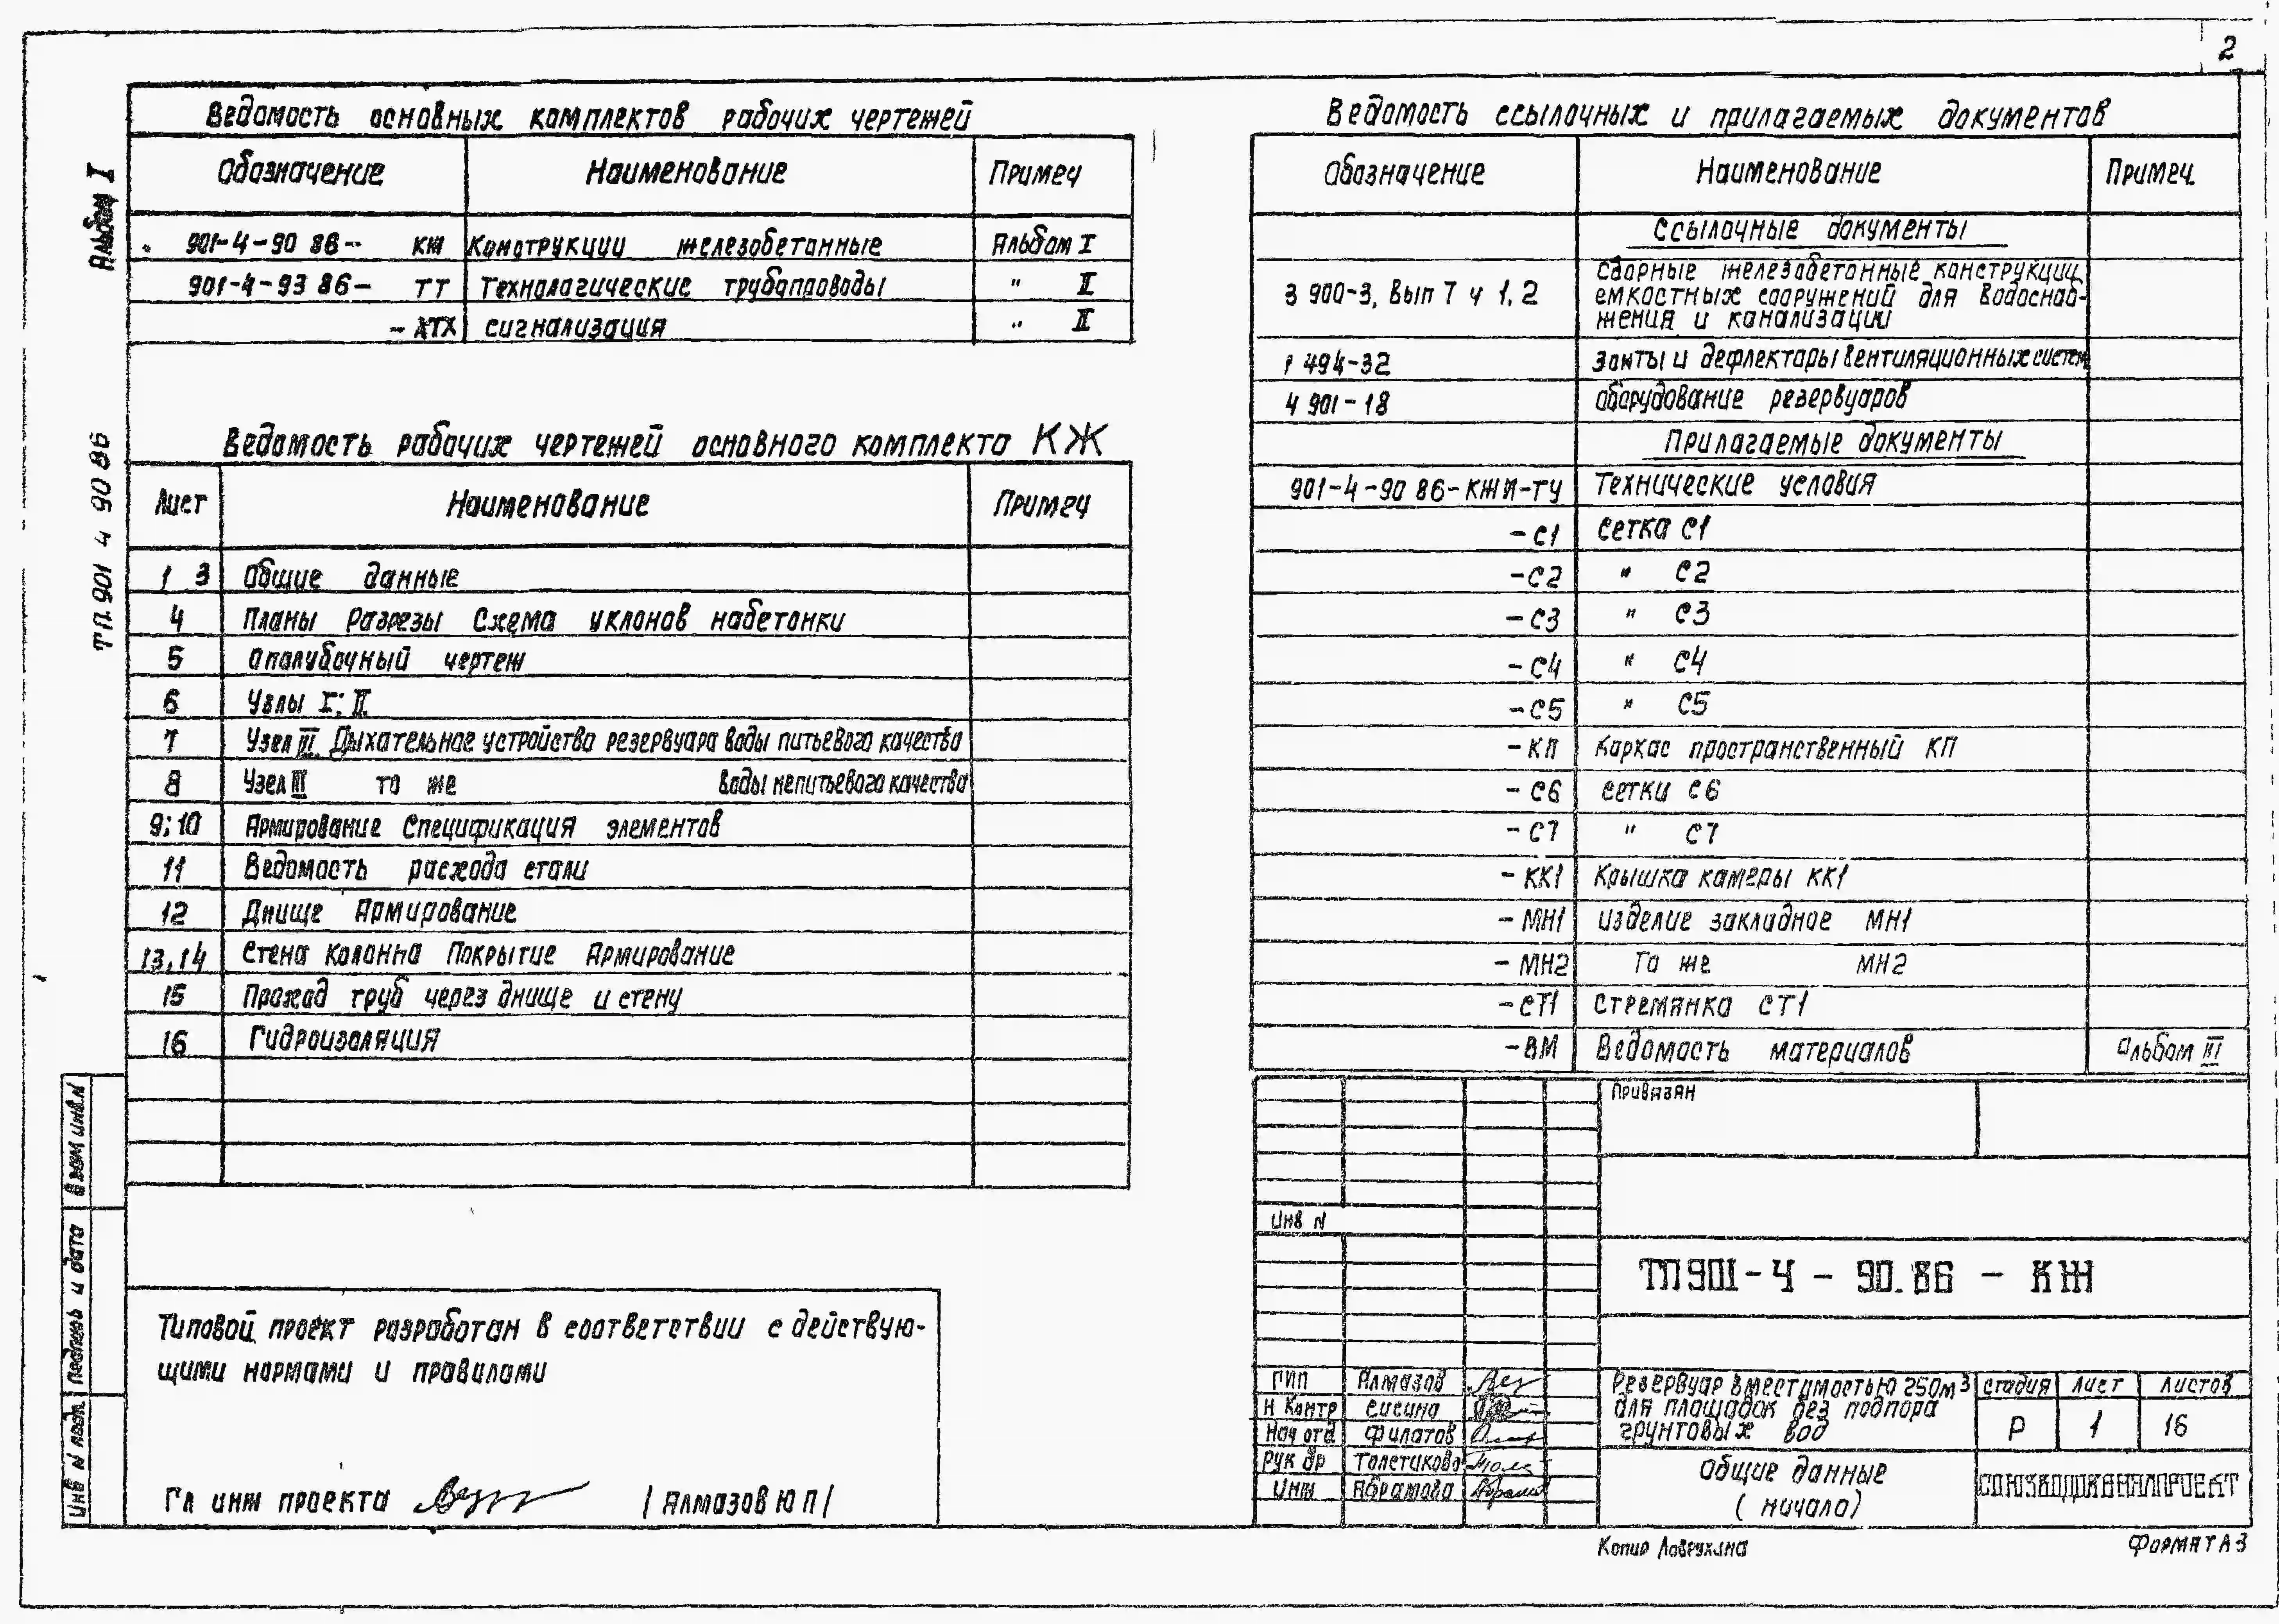 2
Альбом I
ТП.901 4 90 86
Ведомость основных комплектов рабочих чертежей
Обозначение Наименование Примеч
901-4-90 86- КЖ Конструкции железобетонные Альбом I
901-4-93 86- ТТ Технологические трубопроводы " II
-АТХ сигнализация " II
Ведомость рабочих чертежей основного комплекта КЖ
Лист Наименование Примеч
1 3 Общие данные
4 Планы Разрезы Схема уклонов набетонки
5 Опалубочный чертеж
6 Узлы I; II
7 Узел III Дыхательное устройство резервуара воды питьевого качества
8 Узел III то же воды непитьевого качества
9; 10 Армирование Спецификация элементов
11 Ведомость расхода стали
12 Днище Армирование
13, 14 Стена Колонна Покрытие Армирование
15 Проход труб через днище и стену
16 Гидроизоляция
Типовой проект разработан в соответствии с действую-
щими нормами и правилами
Гл инж проекта /Алмазов Ю П/
Взам инв.N
Подпись и дата
Инв N подл
Ведомость ссылочных и прилагаемых документов
Обозначение Наименование Примеч.
Ссылочные документы
3 900-3, Вып 7 ч 1, 2 Сборные железобетонные конструкции
емкостных сооружений для водоснаб-
жения и канализации
1 494-32 Зонты и дефлекторы вентиляционных систем
4 901-18 Оборудование резервуаров
Прилагаемые документы
901-4-90 86-КЖИ-ТУ Технические условия
-С1 сетка С1
-С2 " С2
-С3 " С3
-С4 " С4
-С5 " С5
-КП Каркас пространственный КП
-С6 сетки С6
-С7 " С7
-КК1 Крышка камеры КК1
-МН1 изделие закладное МН1
-МН2 То же МН2
-СТ1 Стремянка СТ1
-ВМ Ведомость материалов Альбом III
Привязан
Инв N
ТП 901-4-90.86-КЖ
ГИП Алмазов
Н Контр Сисина
Нач отд Филатов
Рук бр Толстикова
Инж Абрамова
Резервуар вместимостью 250м3
для площадок без подпора
грунтовых вод
Стадия Лист Листов
Р 1 16
Общие данные
(начало)
СОЮЗВОДОКАНАЛПРОЕКТ
Копир
Формат А3